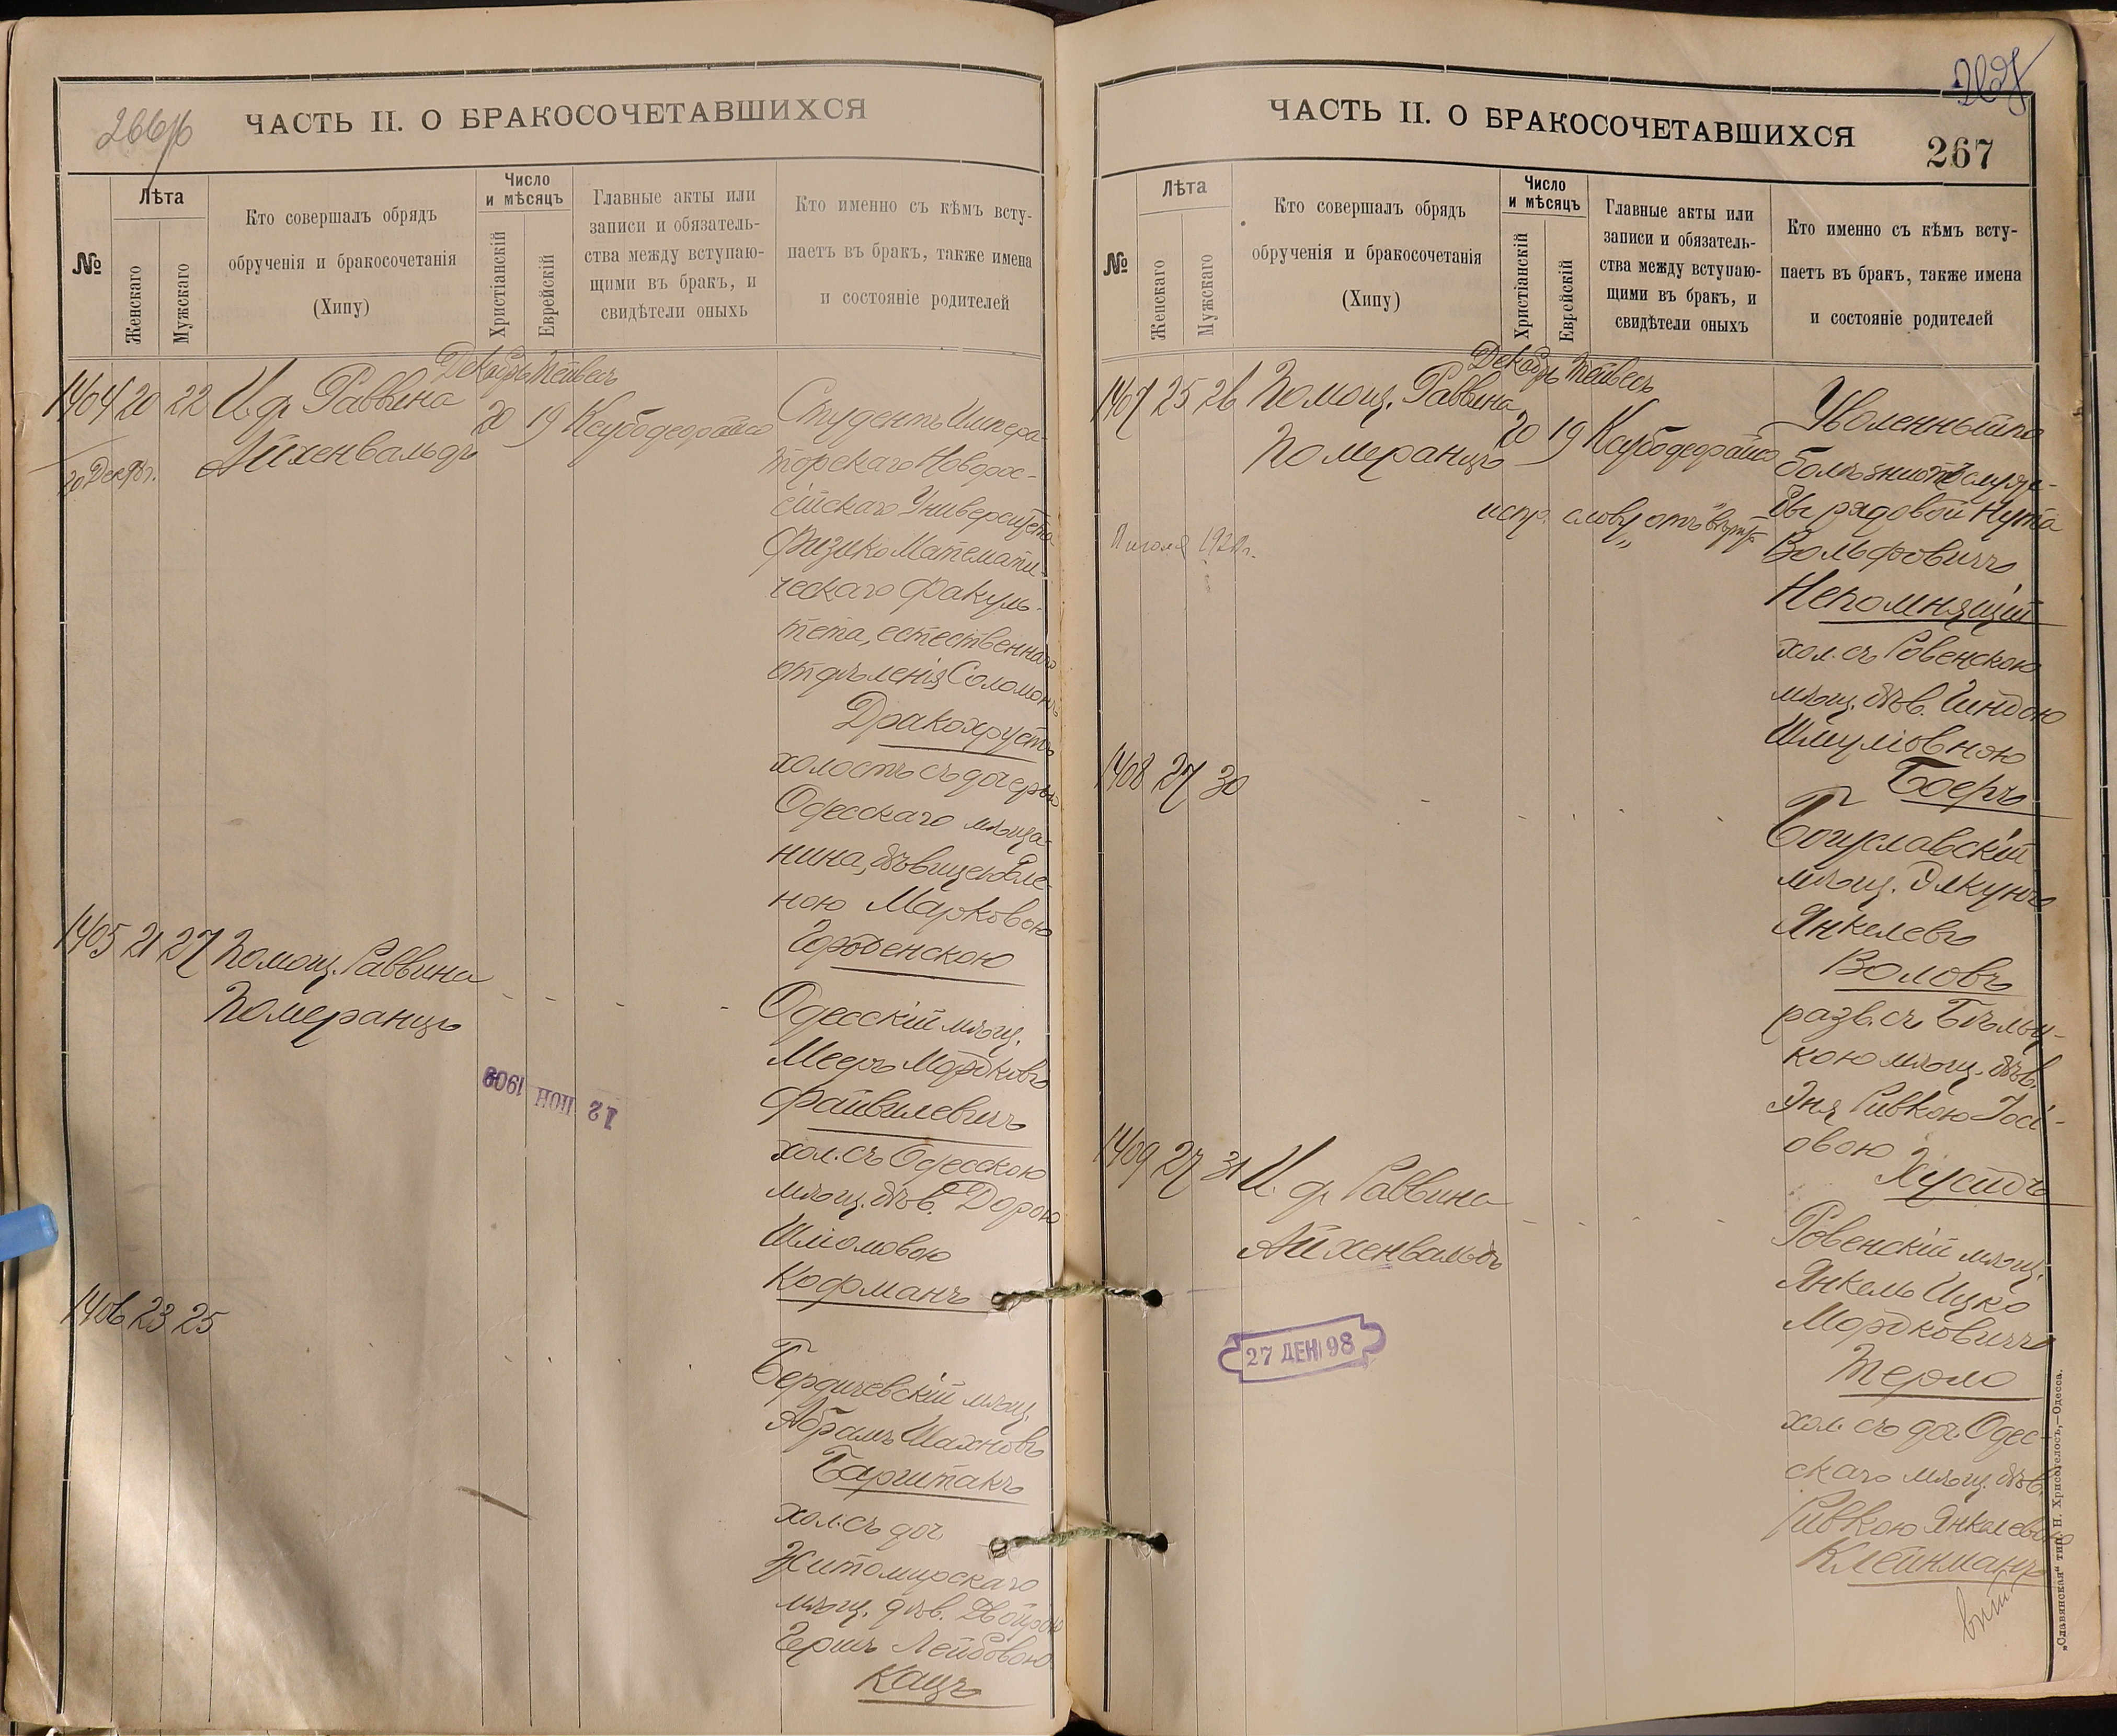 266 об
ЧАСТЬ II. О БРАКОСОЧЕТАВШИХСЯ
№
Лѣта
Женскаго
Мужскаго
Кто совершалъ обрядъ
обрученія и бракосочетанія
(Хипу)
Число
и мѣсяцъ
Христіанскій
Еврейскій
Главные акты или
записи и обязатель-
ства между вступаю-
щими въ бракъ, и
свидѣтели оныхъ
Кто именно съ кѣмъ всту-
паетъ въ бракъ, также имена
и состояніе родителей
Декабрь Тейвесъ
1404 20 22 И. д. Раввина 20 19
Айхенвальдъ
Студентъ Импера-
торскаго Новорос-
сійскаго Университета
Физико Математи-
ческаго Факуль-
тета, естественнаго
отдѣленія Соломонъ
Дракохрустъ
холостъ съ дочерью
Одесскаго мѣща-
нина, дѣвицею Еле-
ною Марковою
Городенскою
1405 21 27 Помощ. Раввина
Померанцъ
Одесскій мѣщ.
Мееръ Мордковъ
Файвилевичъ
хол. съ Одесскою
мѣщ. дѣв. Дорою
Шліомовою
Кофманъ
12 ІЮН 1902
1406 23 25
Бердичевскій мѣщ.
Абрамъ Шахновъ
Барштакъ
хол. съ доч.
Житомирскаго
мѣщ. дѣв. Двойрою
Гершъ Лейбовою
Кацъ
ЧАСТЬ II. О БРАКОСОЧЕТАВШИХСЯ
267
№
Лѣта
Женскаго
Мужскаго
Кто совершалъ обрядъ
обрученія и бракосочетанія
(Хипу)
Число
и мѣсяцъ
Христіанскій
Еврейскій
Главные акты или
записи и обязатель-
ства между вступаю-
щими въ бракъ, и
свидѣтели оныхъ
Кто именно съ кѣмъ всту-
паетъ въ бракъ, также имена
и состояніе родителей
Декабрь Тейвесъ
1407 25 26 Помощ. Раввина 20 19
Померанцъ
испр. слову "отъ"
Уволенный по
болѣзни отъ служ-
бы рядовой Нута
Вольфовичъ
Непомнящій
хол. съ Ровенскою
мѣщ. дѣв. Гиндою
Шмуліовною
Боеръ
1408 27 30
Богуславскій
мѣщ. Элкунъ
Янкелевъ
Воловъ
разв. съ Бѣльц-
кою мѣщ. дѣв.
Эня Ривкою Іосі-
овою
Хустъ
1409 27 31 И. д. Раввина
Айхенвальдъ
Ровенскій мѣщ.
Янкель Ицко
Мордковичъ
Терло
хол. съ доч. Одес-
скаго мѣщ. дѣв.
Ривкою Янкелевою
Клейманъ
27 ДЕК 98
„Славянская“ тип. Н. Хрисогелосъ,—Одесса.